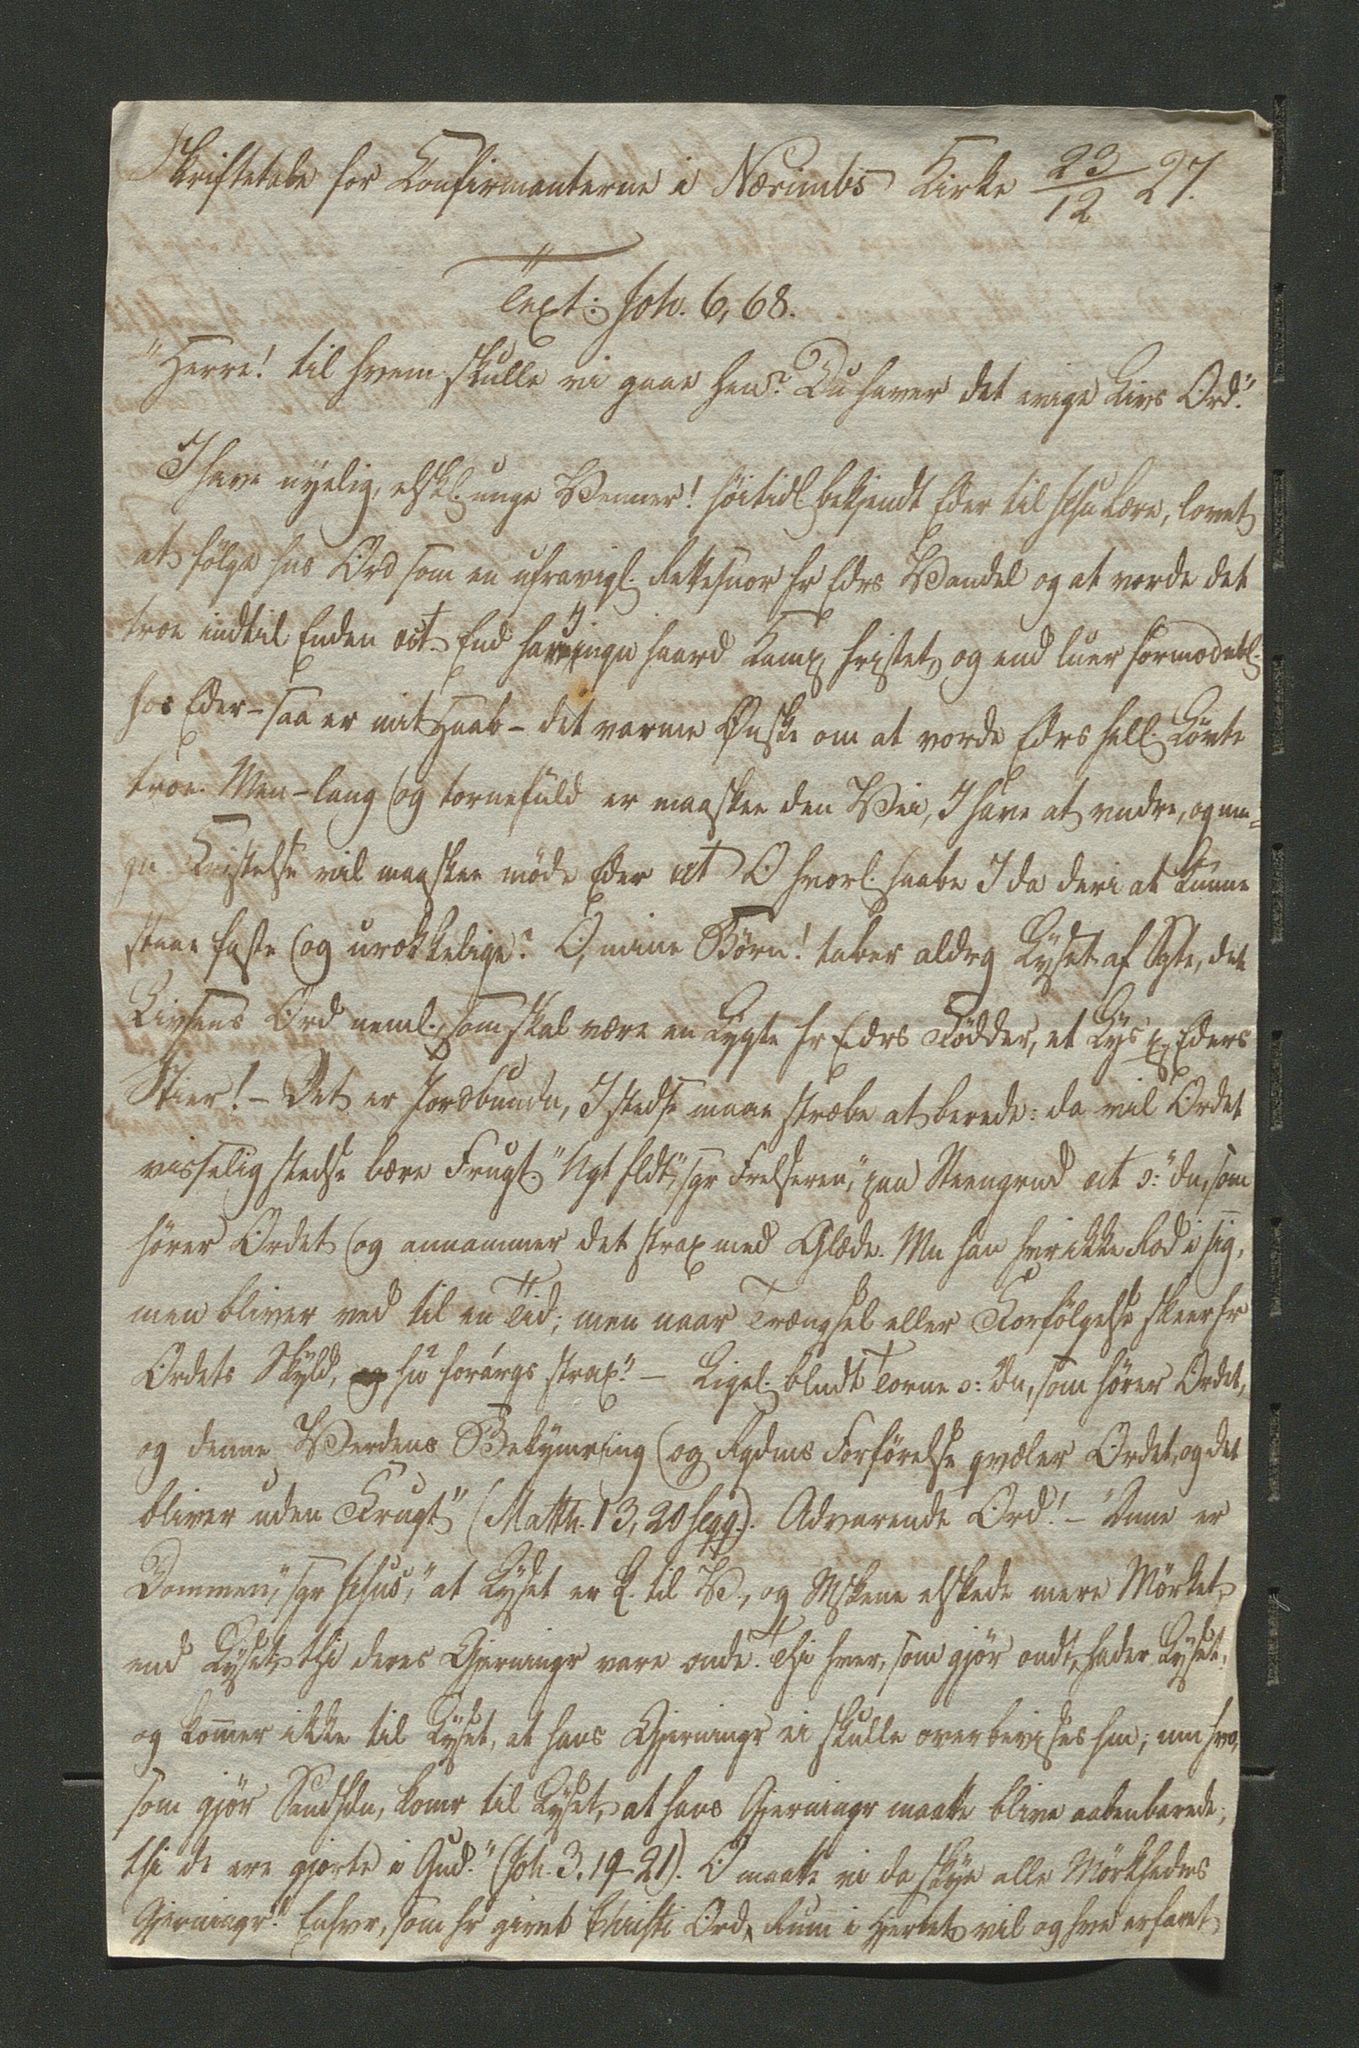 Skriftetale for Confirmanterne i Næsimbs Kirke 23/12 27.
Text: Joh. 6, 68.
"Herre! til hvem skulle vi gaae hen? Du haver det evige Livs Ord."
I have nyelig, elskl. unge Venner! höitidl. bekjendt Eder til Jesu Lære, lovet
at fölge hns Ord som en ufravigl. Rettesnor fr Edrs Vandel og at vorde det
troe indtil Enden. End have I ingn haard Kamp fristet, og end luer formodentl.
hos Eder – saa er mit Haab – det varme Ønske om at vorde Edrs hell. Lövte
troe. Men – lang og tornefuld er maaskee den Vei, I have at vndre, og man-
gn Fristelse vil maaskee möde Eder O hvorl. haabe I da deri at kunne
staae faste og urokkelige? O, mine Börn! taber aldrg Lyset af Sgte, det
Livsens Ord neml., som skal være en Lygte fr Edrs Födder, et Lys p. Eders
Stier! – Det er Jordbundn, I stedse maae stræbe at berede: da vil Ordet
visselig stedse bære Frugt. "Ngt fldt", sgr Frelseren, "paa Steengrnd ɔ: "dn, som
hörer Ordet og annammer det strax med Glæde. Mn han hvr ikke Rod i sig,
men bliver ved til en Tid; men naar Trængsel eller Forfölgelse skeer fr
Ordets Skyld, forargs strax." – Ligel. blndt Torne ɔ: dn, som hörer Ordet,
og denne Verdens Bekymring og Rgdms Forförelse qvæler Ordet, og det
bliver uden Frugt" (Matth. 13, 20 seqq.). Advarende Ord! – "Dnne er
Dommen", sgr Jesus, "at Lyset er k. til V., og Mskene elskede mere Mörket,
end Lyset, thi deres Gjerningr vare onde. Thi hver, som gjör ondt, hader Lyset,
og kommer ikke til Lyset, at hans Gjerningr ei skulle overbevises hm; mn hvo,
som gjör Sandhdn, komr til Lyset, at hans Gjerningr maatte blive aabenbarede;
thi de ere gjorte i Gud." (Joh. 3, 19-21). O maatte vi da skye alle Mörkhedns
Gjerningr! Enhvr, som hr givet Christi Ord Rum i Hjertet, vil og hve erfaret